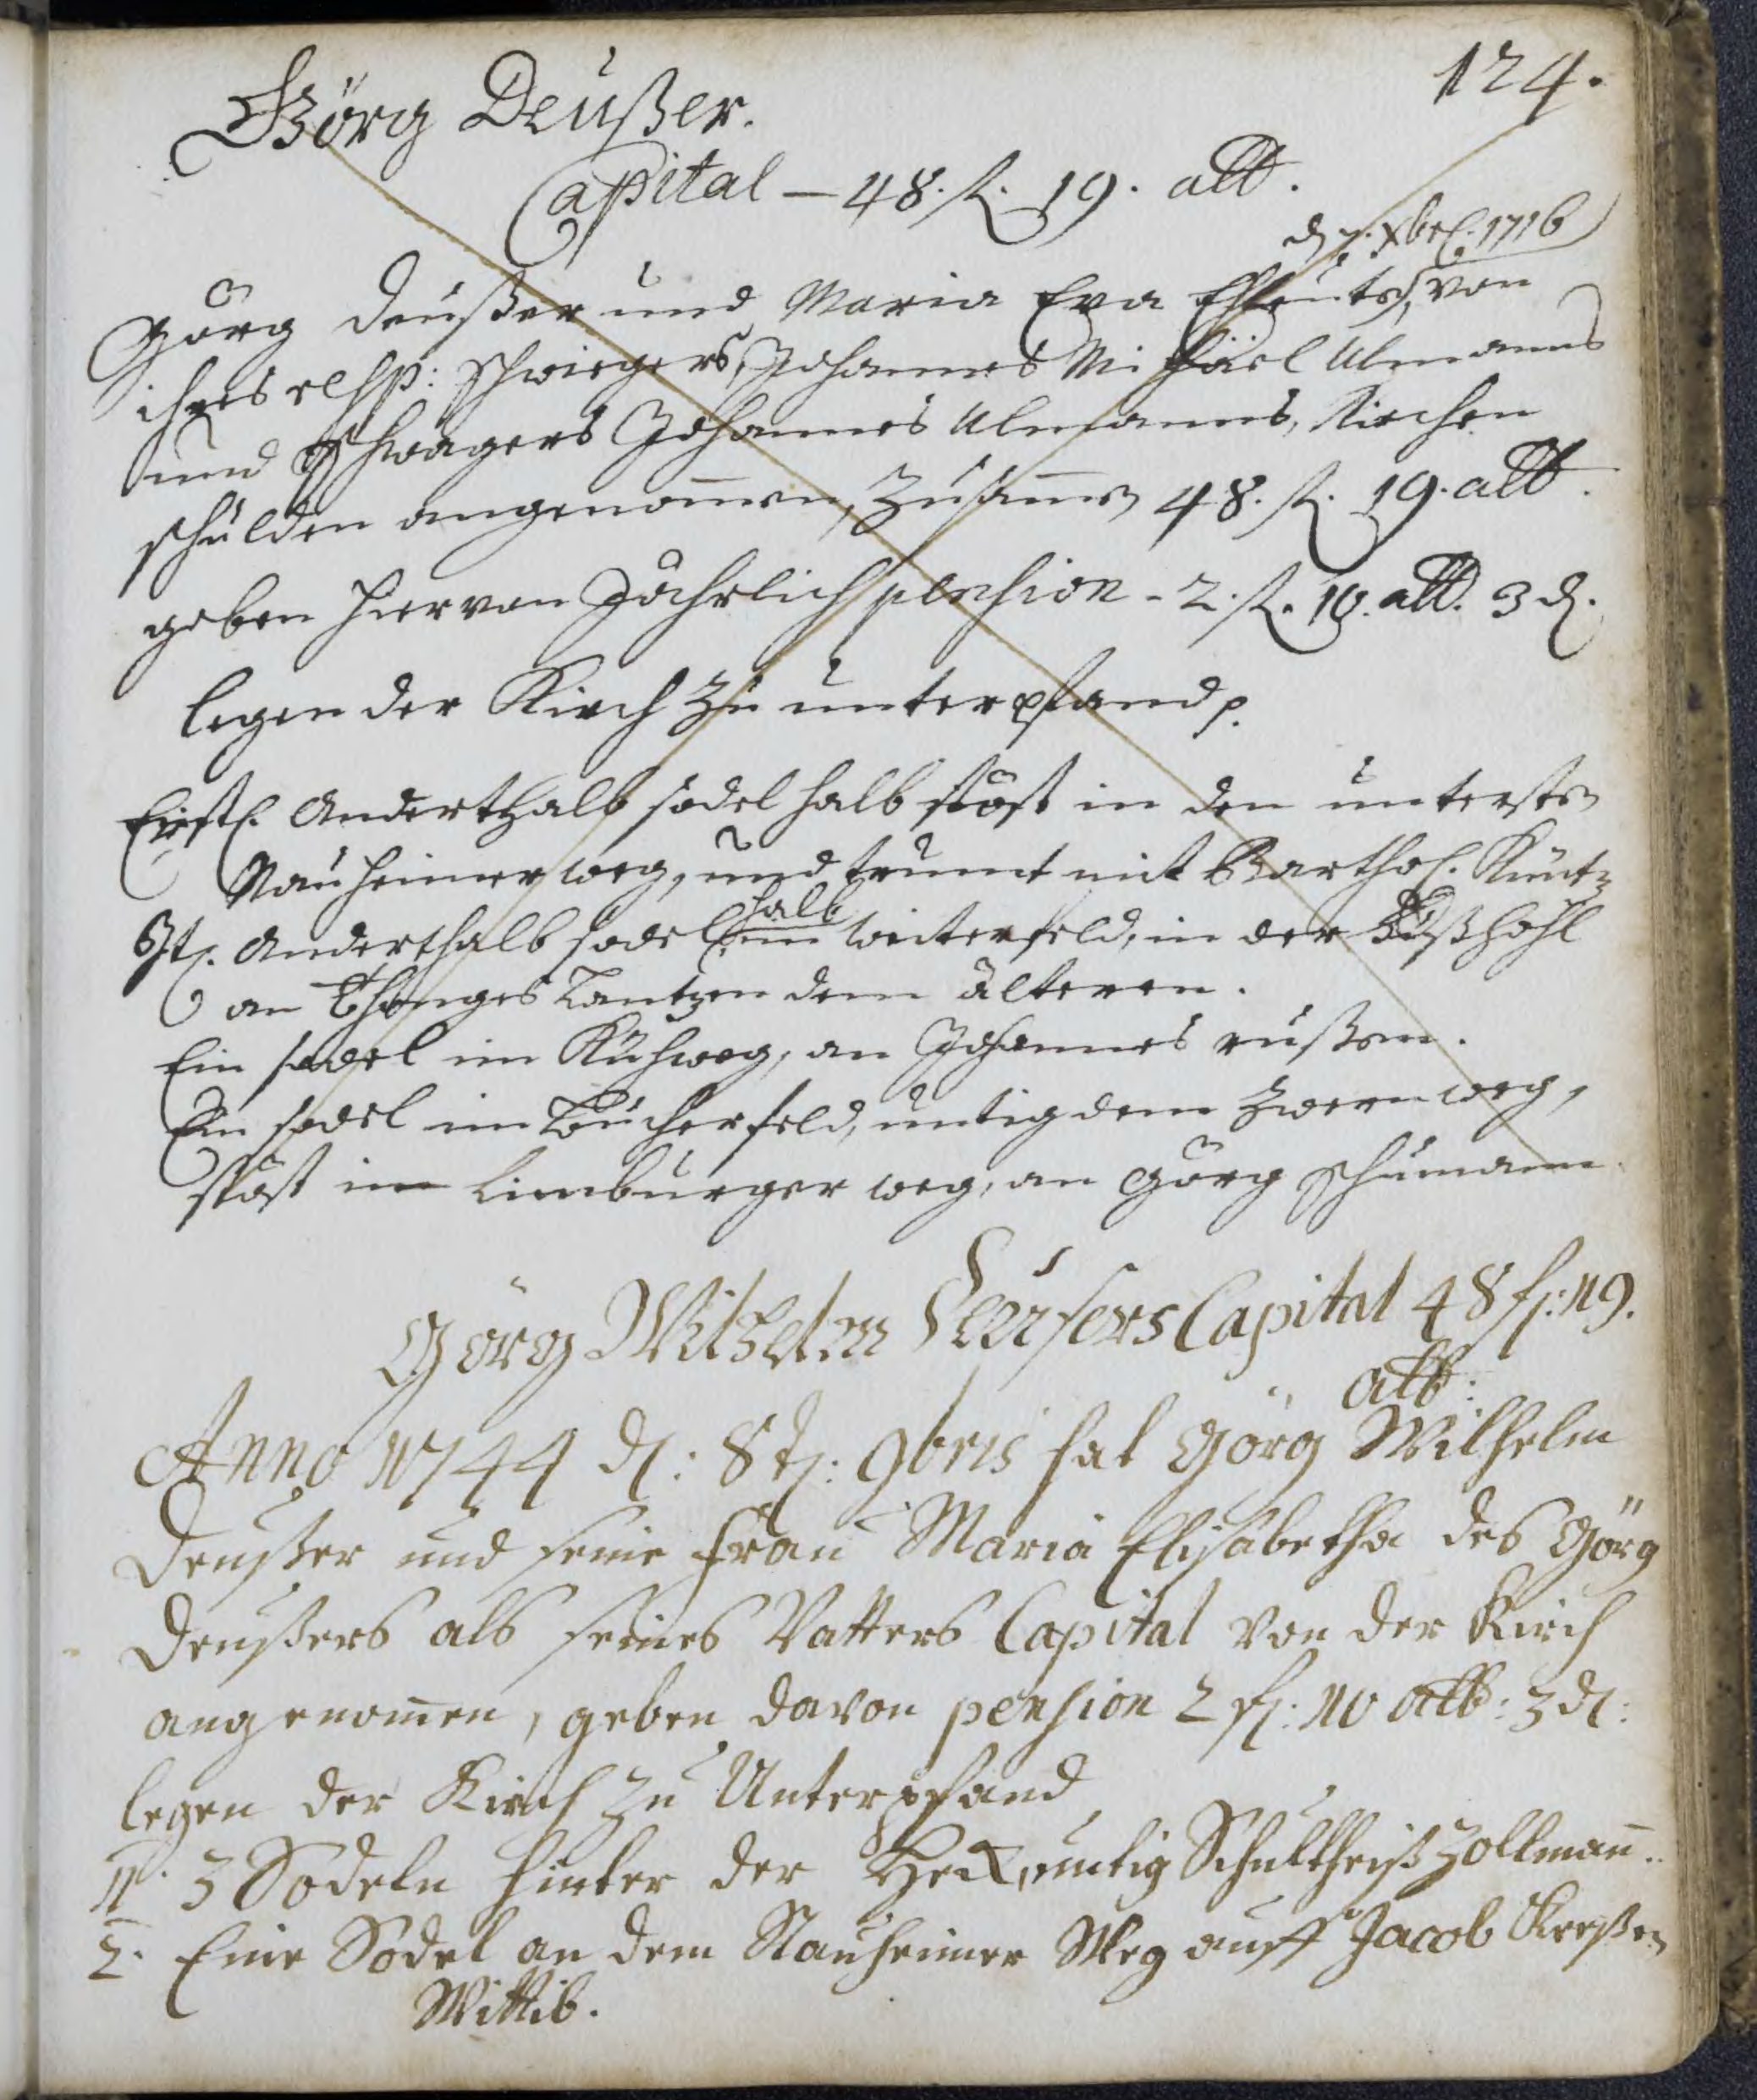 124.
Görg Deußer.
Capital – 48. fl. 19. alb.
d. 7. Xbr. 1716
Görg Deußer und Maria Eva Eheleuth, von
ihres resp: Schwiegers, Johannes Michäel Ulmanns
und Schwagers Johannes Ulmanns, Kirchen
schulden angenom̄en, Zusam̄en 48. fl. 19. alb.
geben hiervon Jährlich pension - 2. fl. 10. alb. 3 d.
legen der Kirch zu unterpfand p.
Erstl. Anderthalb sodel halb stöst in den untersten
Nauheimer weg, und trumt mit Barthol. Küntz
It. Anderthalb sodel halb im weiterfeld, in der
an Thonges Lantzen dem älteren.
Ein sodel im Kühweg, an Johannes rußen.
Ein sodel im Bücherfeld, untig dem Zwernweg,
stöst im Limburger weg, an Görg Schumann
Görg Wilhelm Deusers Capital 48 fl: 19.
alb:
Anno 1744 d: 8t: 9bris hat Görg Wilhelm
Deußer und seine Frau Maria Elisabetha des Görg
Deußers als seines Vatters Capital von der Kirch
angenom̄en, geben davon pension 2 fl: 10 alb: 3 d:
legen der Kirch zu Unterpfand
1. 3 Sodeln hinter der Heck, untig Schultheiß Zollman̄.
2. Eine Sodel an dem Nauheimer Weg auff Jacob
Wittib.